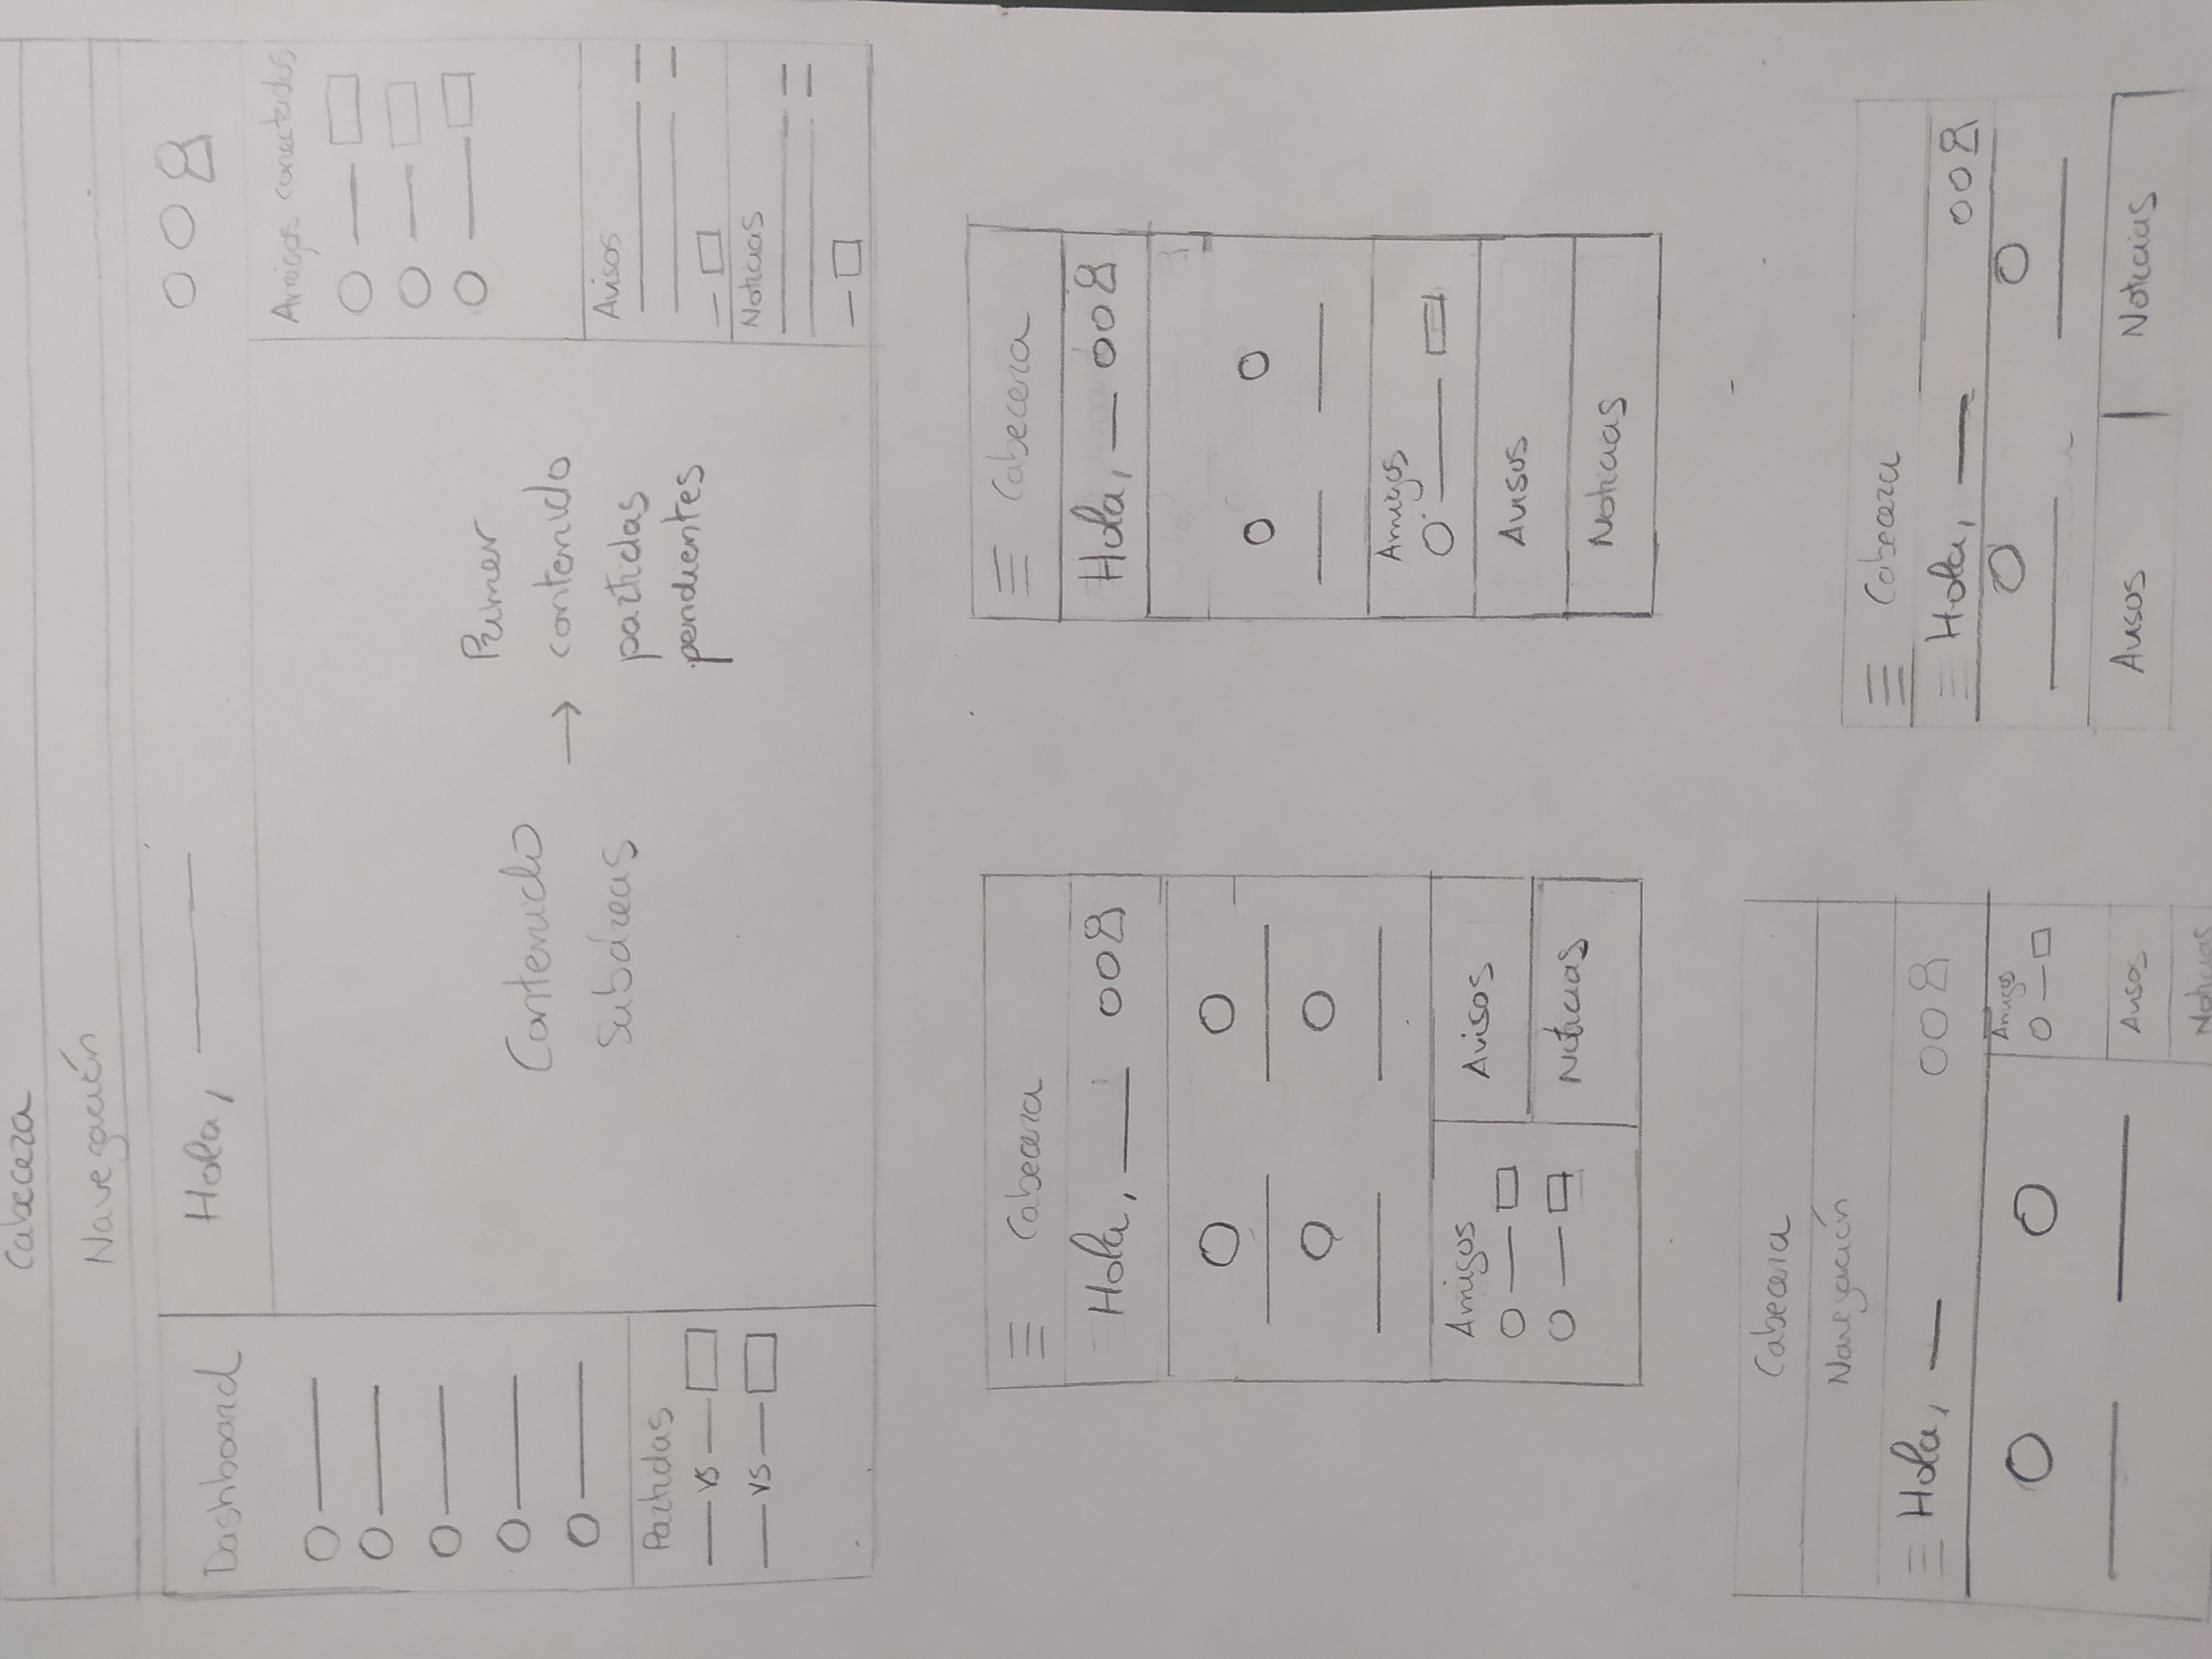 Cabecera
Navegación
Dashboard
Hola,
Amigos conectados
Contenido
subáreas
→ Primer
contenido
partidas
pendientes
Partidas
VS
VS
Avisos
Noticias
Cabecera
Hola,
Amigos
Avisos
Noticias
Cabecera
Hola,
Amigos
Avisos
Noticias
Cabecera
Navegación
Hola,
Amigos
Avisos
Noticias
Cabecera
Hola,
Avisos
Noticias